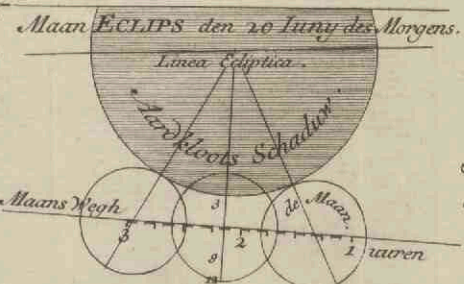 Maan ECLIPS den 20 Iuny des Morgens.
Linea Ecliptica.
Aardkloots Schaduw.
Maans Wegh
de Maan.
3
3 2 1 uuren
9
12